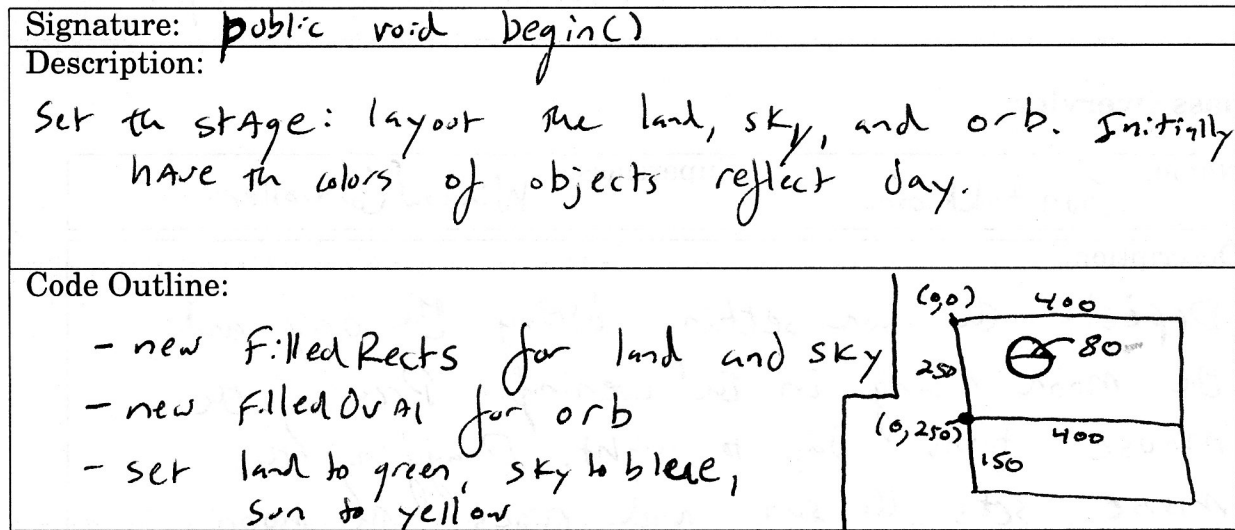 Signature: public void begin()
Description:
Set th stAge: layout the land, sky, and orb. Initially
hAve th colors of objects reflect day.
Code Outline:
- new FilledRects for land and sky
- new FilledOvAl for orb
- set land to green, sky to blue,
sun to yellow
(0,0) 400
80
250
(0,250) 400
150